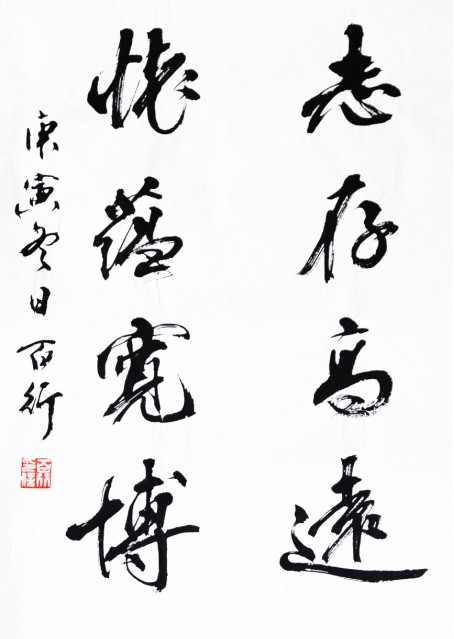 志存高遠
懷蘊寬博
庚寅冬日 百行